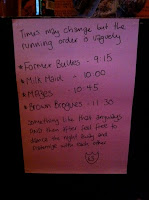 Times may change but the
running order is vaguely
* Former Bullies - 9:15
* Milk Maid - 10:00
* Mazes - 10:45
* Brown Brogues - 11:30
Something like that anyways,
then after feel free to
dance the night away and
with each other